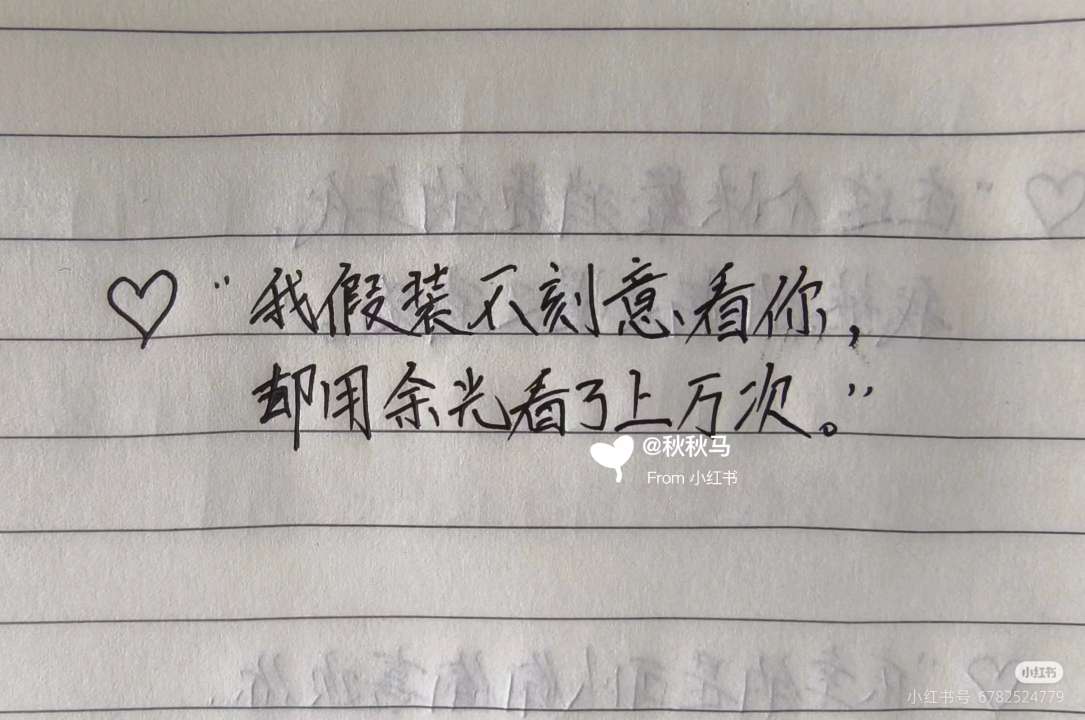 ♡“我假装不刻意看你，
却用余光看了上万次。”
@秋秋马
From 小红书
小红书
小红书号 6782524779